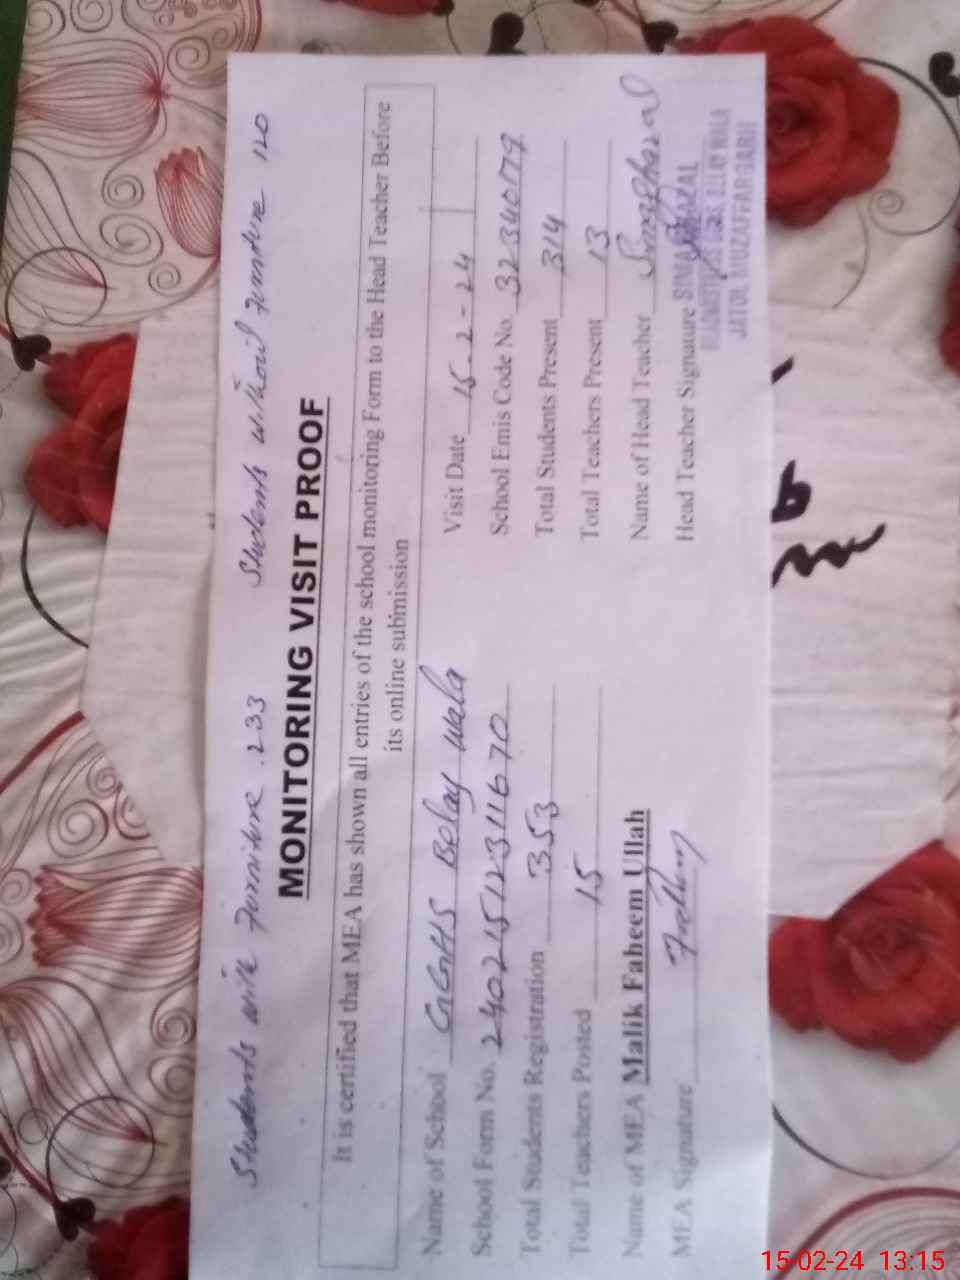 Students with Furniture . 233 Students without Furniture 120
MONITORING VISIT PROOF
It is certified that MEA has shown all entries of the school monitoring Form to the Head Teacher Before
its online submission
Name of School GGHS Belay Wala Visit Date 15-2-24
School Form No. 240215123111670 School Emis Code No. 32340179
Total Students Registration 353 Total Students Present 314
Total Teachers Posted 15 Total Teachers Present 13
Name of MEA Malik Faheem Ullah Name of Head Teacher
MEA Signature Head Teacher Signature
JATOI, MUZAFFARGARH
15-02-24 13:15